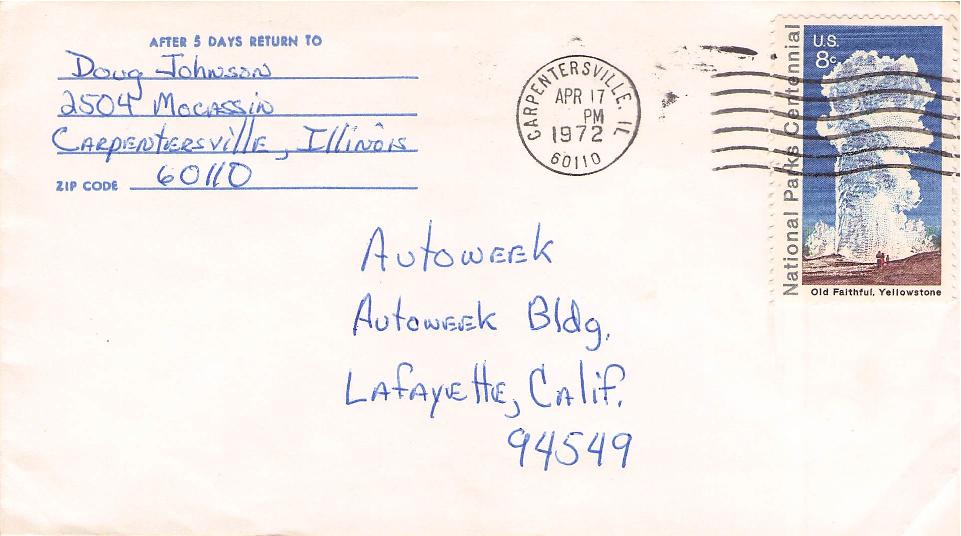 AFTER 5 DAYS RETURN TO
Doug Johnson
2504 Mocassin
Carpentersville, Illinois
ZIP CODE 60110
CARPENTERSVILLE, IL
APR 17
PM
1972
60110
National Parks Centennial
U.S.
8c
Old Faithful, Yellowstone
Autoweek
Autoweek Bldg.
Lafayette, Calif.
94549